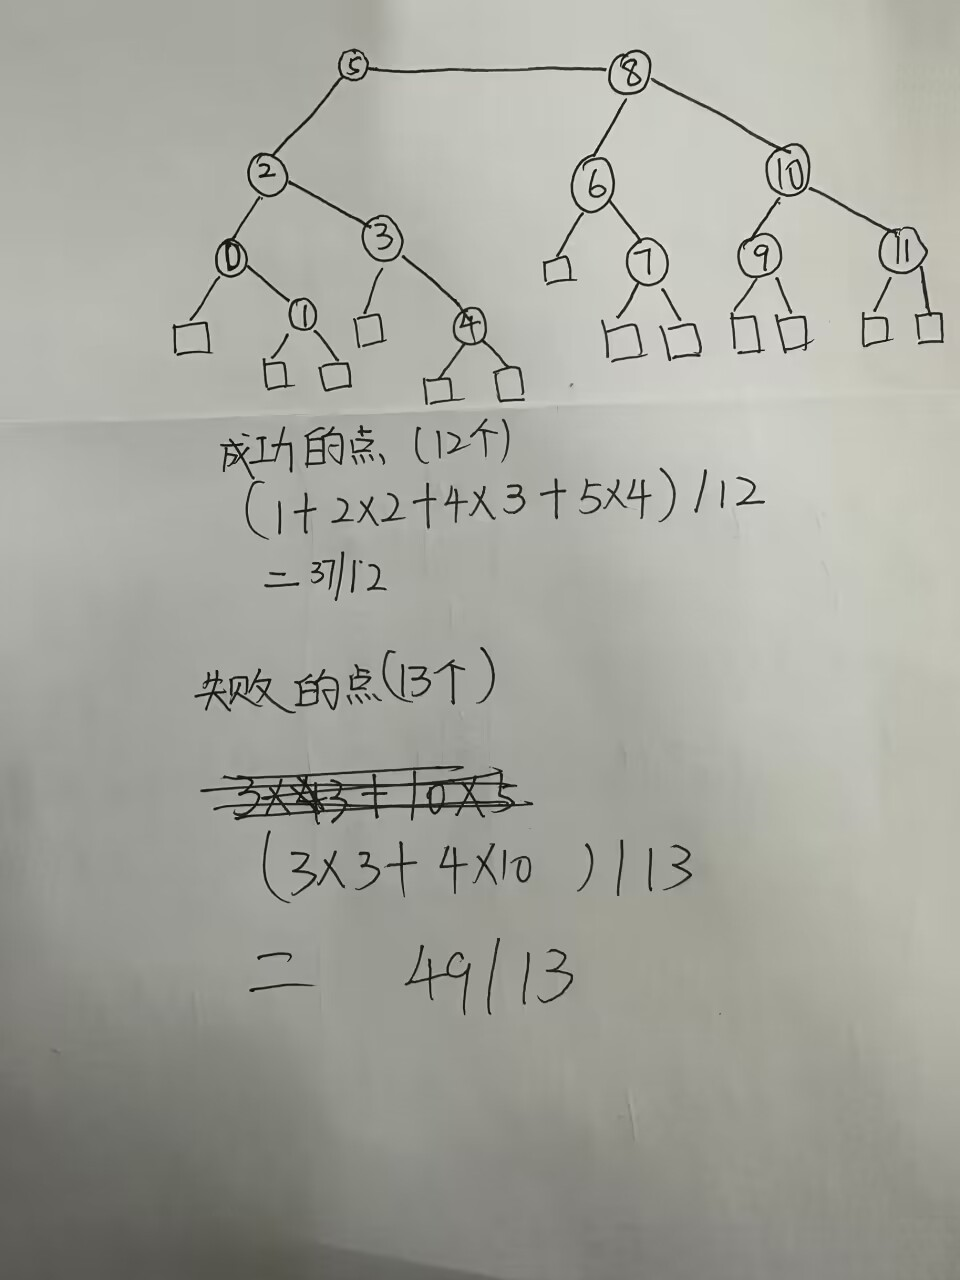 5 8
2 6 10
0 3 7 9 11
1 4
成功的点(12个)
(1+2×2+4×3+5×4)/12
=37/12
失败的点(13个)
3×43+10×5
(3×3+4×10 )/13
= 49/13